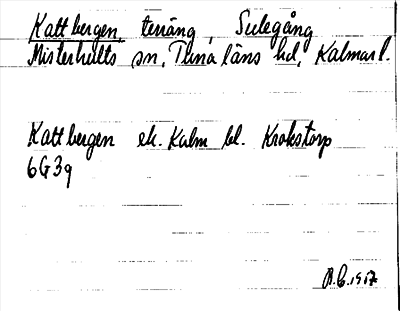 Kattbergen, terräng, Sulegång
Misterhults sn, Tuna läns hd, Kalmar l.
Kattbergen ek. Kalm bl. Krokstorp
6G3g
R.C. 1957